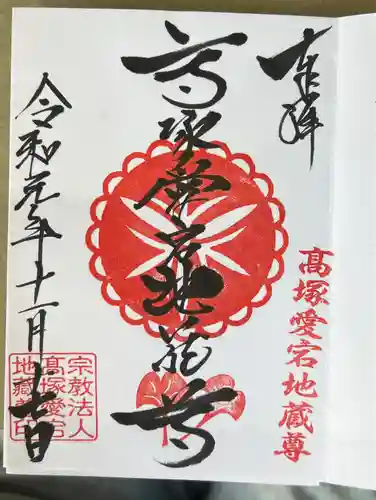 奉拝
髙塚愛宕地蔵尊
髙塚愛宕地蔵尊
令和元年十一月十七日
宗教法人
髙塚愛宕
地藏尊印